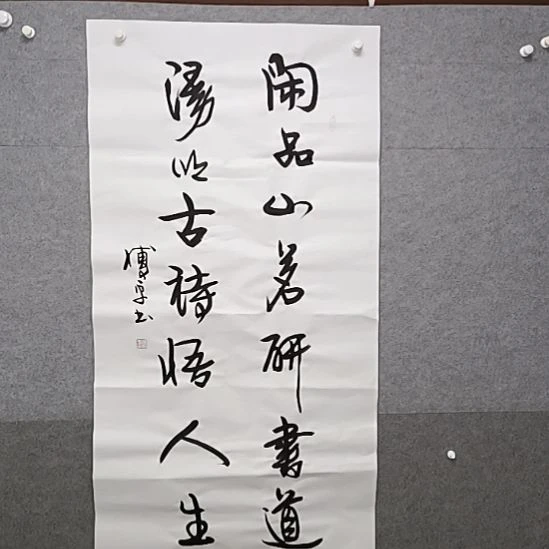 閑品山茗研書道
漫吟古詩悟人生
书